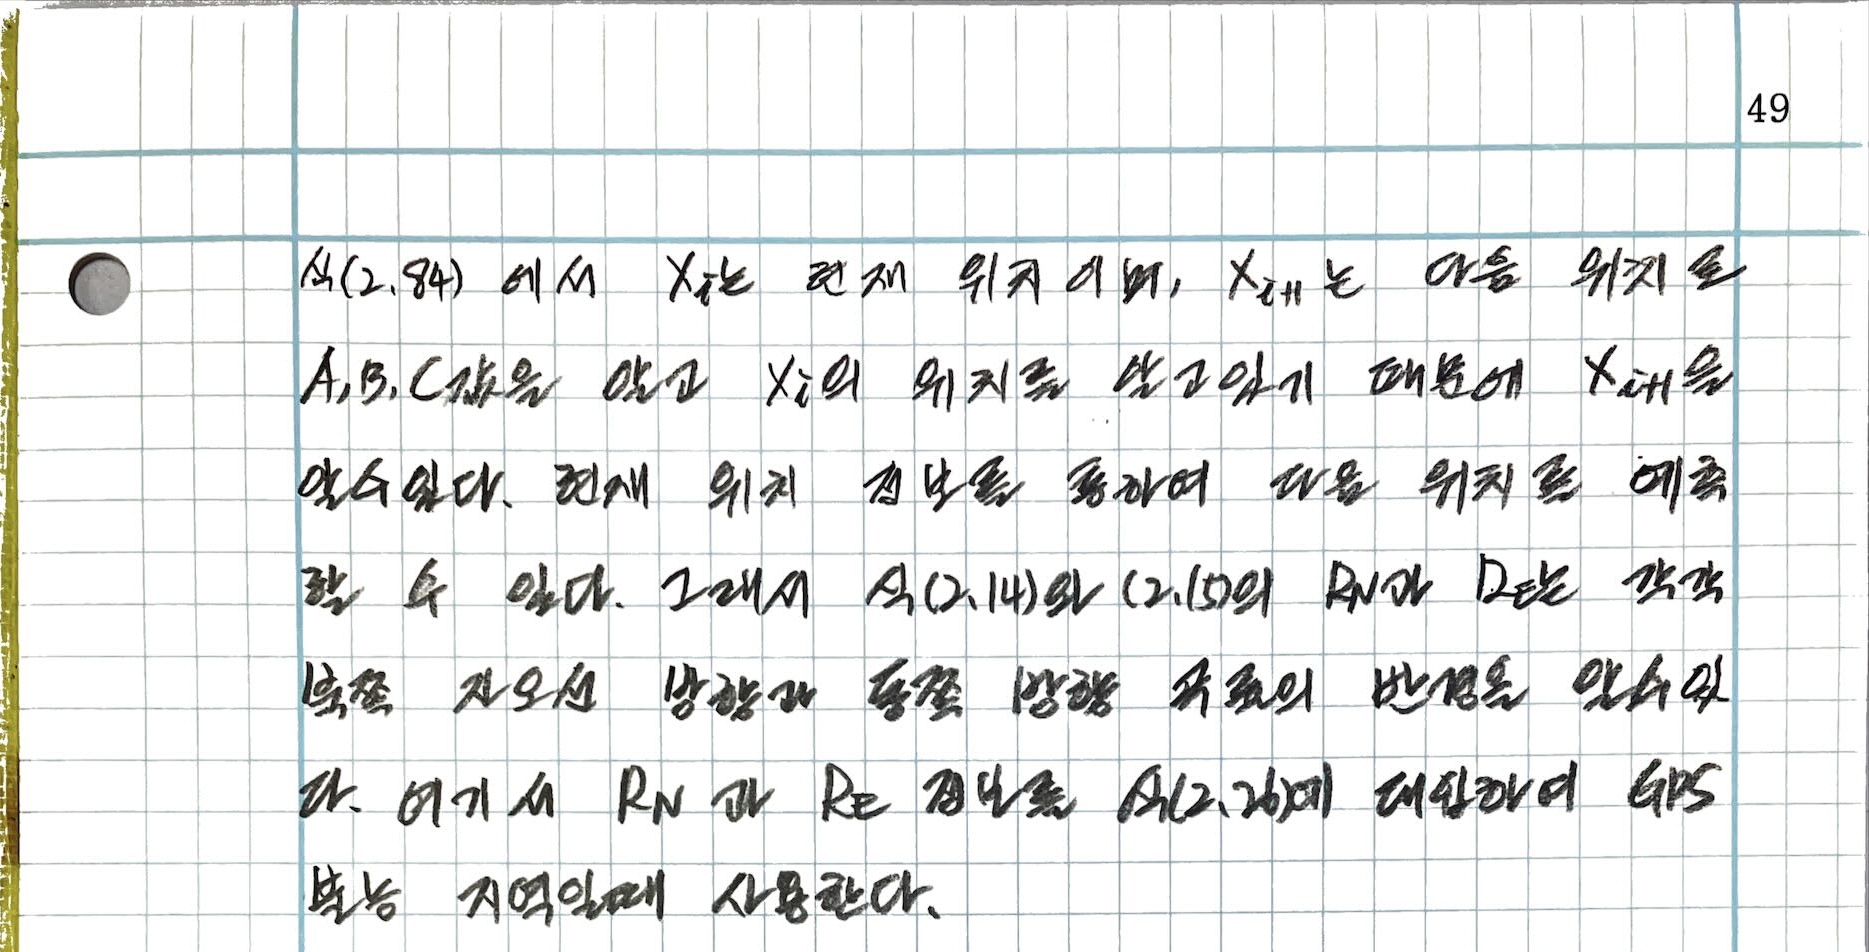 49
식(2.84) 에서 Xi는 현재 위치이며, Xi+1는 다음 위치로
A,B,C값을 알고 Xi의 위치를 알고있기 때문에 Xi+1을
알수있다. 현재 위치 정보를 통하여 다음 위치를 예측
할 수 있다. 그래서 식(2.14)와 (2.15)의 RN과 RE는 각각
북쪽 자오선 방향과 동쪽 방향 곡률의 반경을 알수있
다. 여기서 RN과 RE 정보를 식(2.26)에 대입하여 GPS
불능 지역일때 사용한다.